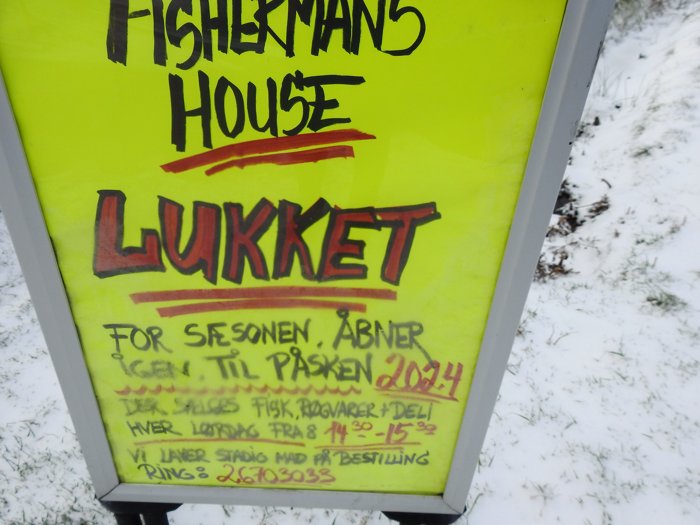 FISHERMANS
HOUSE
LUKKET
FOR SÆSONEN. ÅBNER
IGEN. TIL PÅSKEN 2024
DER SÆLGES FISK, RØGVARER + DELI
HVER LØRDAG FRA 8 14 30 - 15 30
VI LAVER STADIG MAD PÅ BESTILLING
RING: 26703033